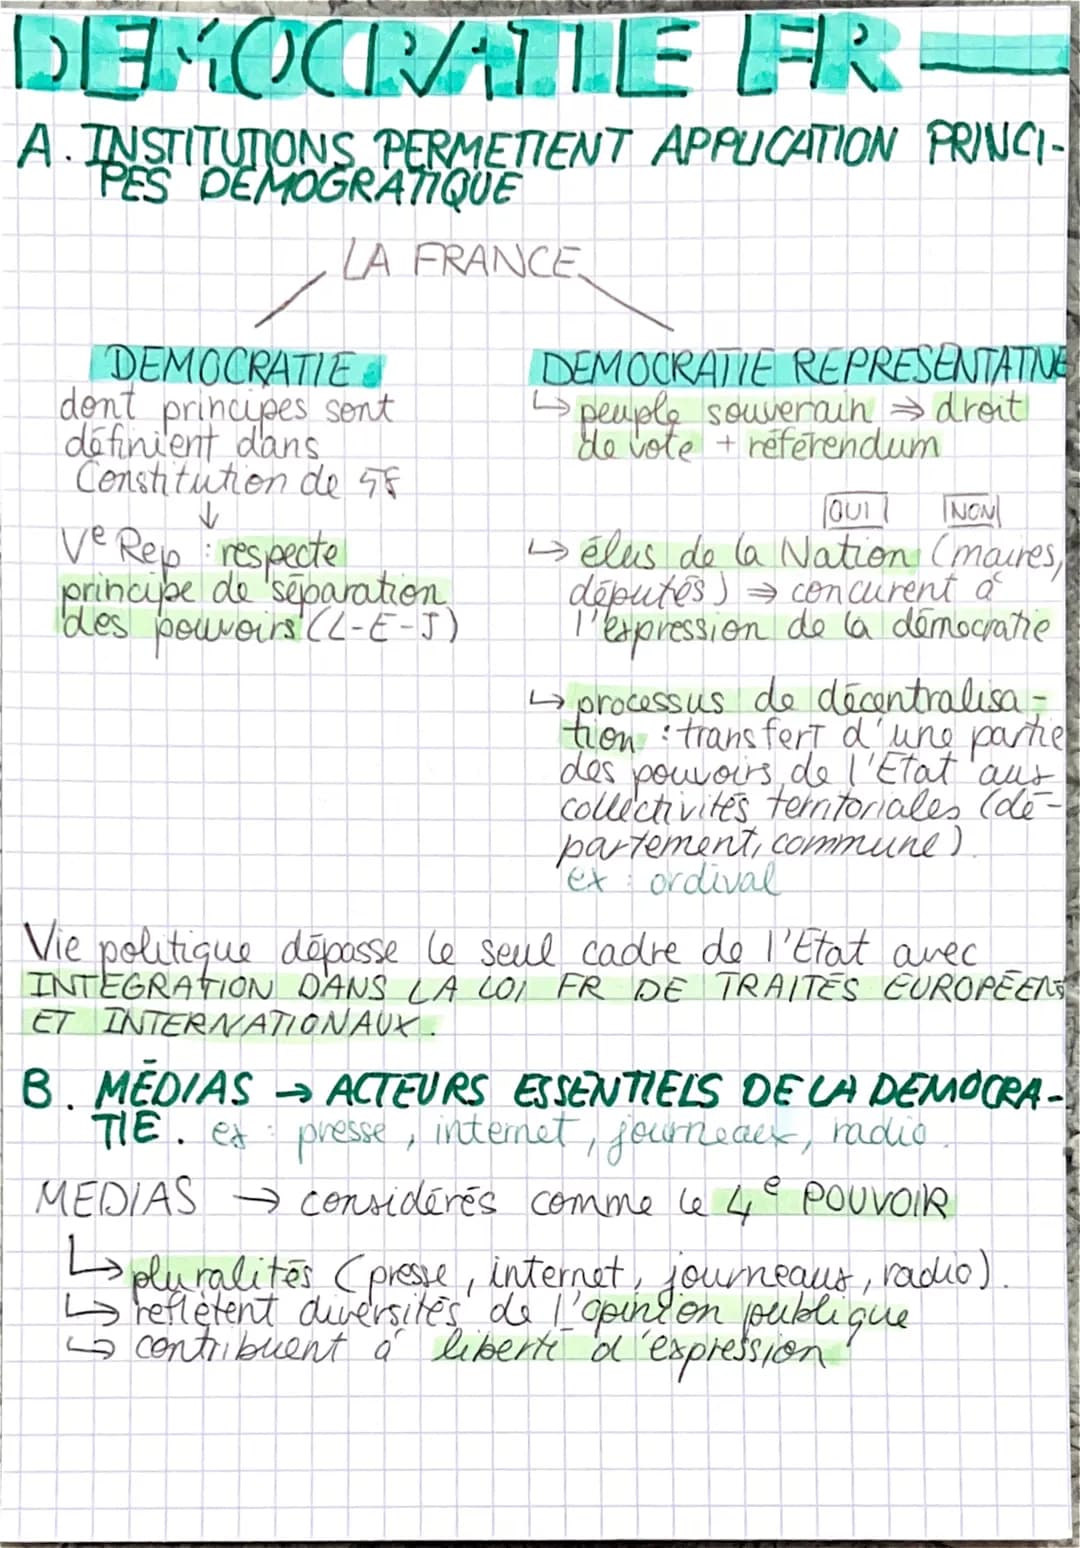 DEMOCRATIE FR
A. INSTITUTIONS PERMETTENT APPLICATION PRINCI-
PES DEMOGRATIQUE
LA FRANCE
DEMOCRATIE
dont principes sont
définient dans
Constitution de 58
↓
Ve Rep : respecte
principe de séparation
des pouvoirs (L-E-J)
DEMOCRATIE REPRESENTATIVE
↳ peuple souverain ⇒ droit
de vote + référendum
OUI NON
↳ élus de la Nation (maires,
députés) ⇒ concurent à
l'expression de la démocratie
↳ processus de décentralisa-
tion : transfert d'une partie
des pouvoirs de l'Etat aux
collectivités territoriales (dé-
partement, commune).
ex : ordival
Vie politique dépasse le seul cadre de l'Etat avec
INTEGRATION DANS LA LOI FR DE TRAITÉS EUROPÉENS
ET INTERNATIONAUX.
B. MÉDIAS → ACTEURS ESSENTIELS DE LA DEMOCRA-
TIE. ex : presse, internet, journeaux, radio.
MEDIAS → considérés comme le 4e POUVOIR
↳ pluralités (presse, internet, journeaux, radio).
↳ reflètent diversités de l'opinion publique
↳ contribuent à liberté d'expression